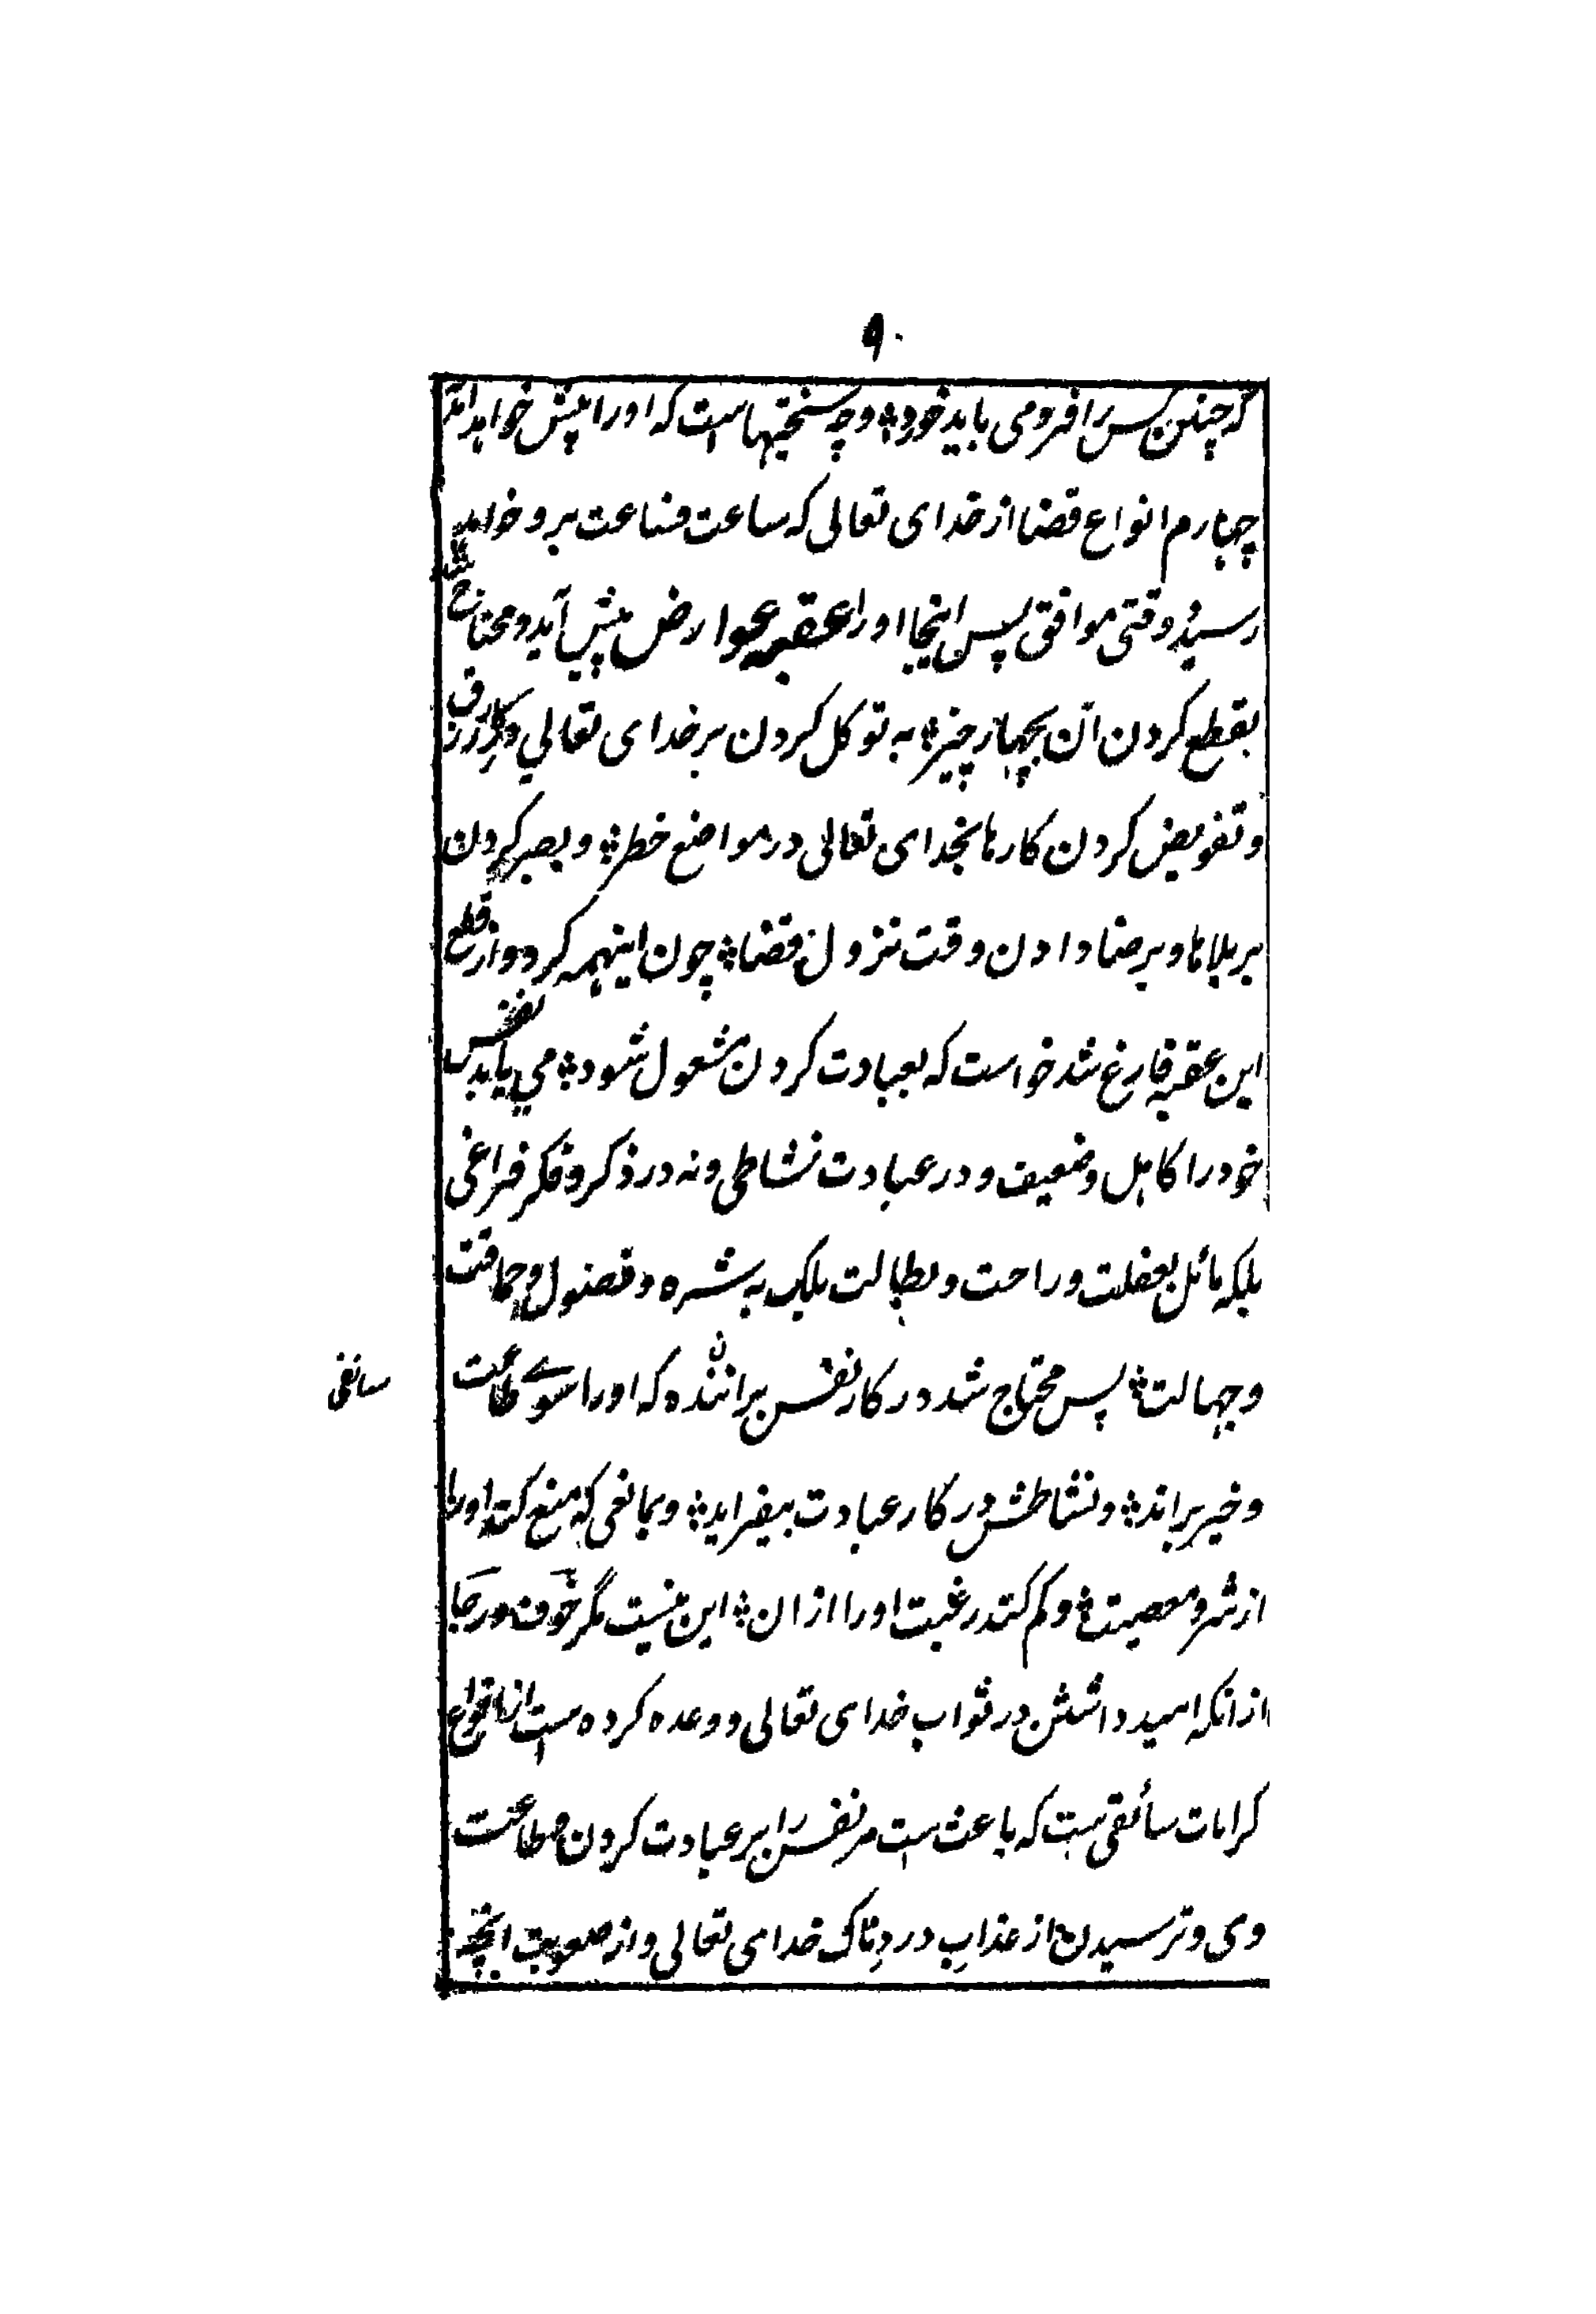 ۹
که چنین کس را فرو می باید خورد؛ و چه سختیهاست که او را پیش خواهد آمد
چهارم انواع قضا از خدای تعالی که ساعت فساعت برو خواهد
رسید وقتی موافق پس اینجا او را عقبه عوارض پیش آید و محتاج شد
بقطع کردن آن بچهار چیز؛ به توکل کردن بر خدای تعالی در کار رزق
و تفویض کردن کارها بخدای تعالی در مواضع خطر؛ و بصبر کردن
بر بلاها و برضا دادن وقت نزول قضا؛ چون اینهمه کرد و از قطع
این عقبه فارغ شد خواست که بعبادت کردن مشغول شود؛ می یابد نفس
خود را کاهل و ضعیف و در عبادت نشاطی و نه در ذکر و فکر فراغی
بلکه مائل بغفلت و راحت و بطالت بلکه به شره و فضول و حماقت
و جهالت؛ پس محتاج شد در کار نفس براننده که او را سوے طاعت
سائقی
و خیر براند؛ و نشاطش در کار عبادت بیفزاید؛ و بمانعی که منع کند او را
از شر و معصیت؛ و کم کند رغبت او را ازان؛ این نیست مگر خوف و رجا
ازانکه امید داشتن در ثواب خدای تعالی و وعده کرده ست از انواع
کرامات سائقی ست که باعث ست مر نفس را بر عبادت کردن و طاعت
وی و ترسیدن از عذاب دردناک خدای تعالی و از صعوبت آنچه